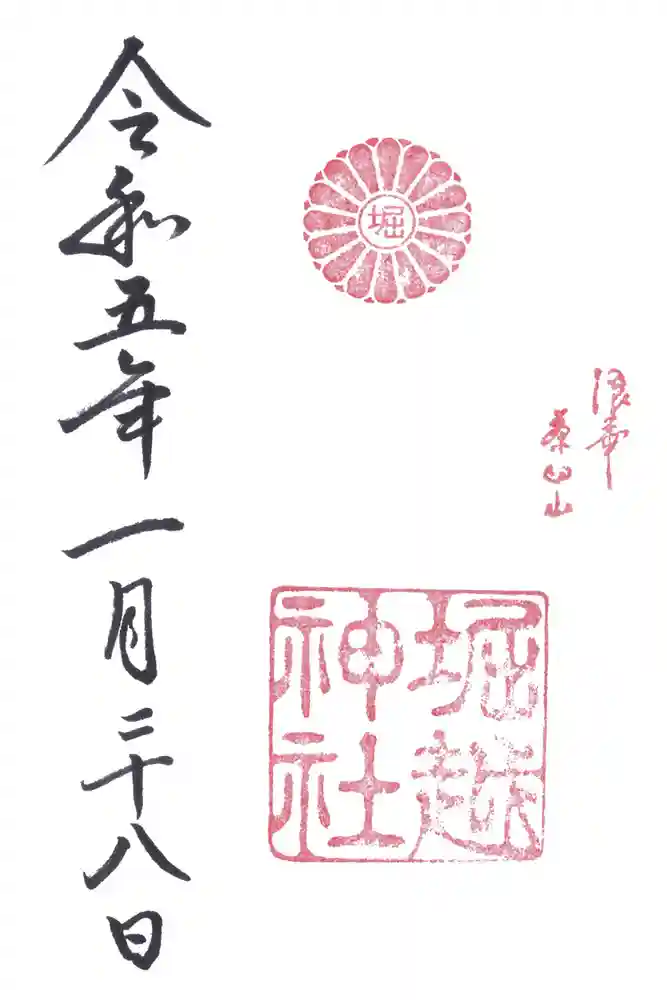 堀
浪華
茶臼山
堀越
神社
令和五年一月二十八日